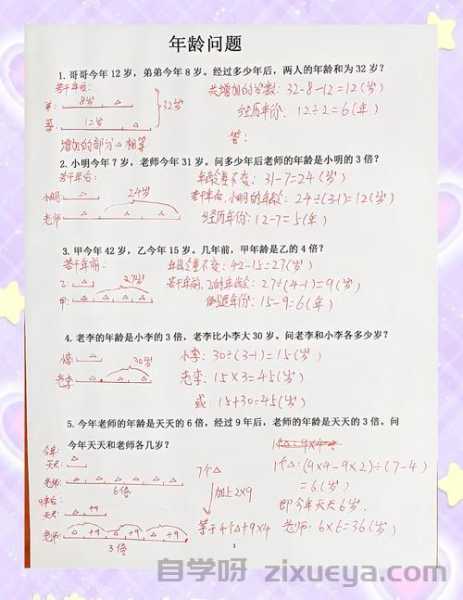 年龄问题
1. 哥哥今年 12 岁，弟弟今年 8 岁。经过多少年后，两人的年龄和为 32 岁？
若干年后：
弟： 8岁 △
哥： 12岁 △
32岁
增加的部分△相等
共增加的岁数：32-8-12=12(岁)
经历年份：12÷2=6(年)
答：
2. 小明今年 7 岁，老师今年 31 岁。问多少年后老师的年龄是小明的 3 倍？
若干年后：
小明： △ 24岁
老师：
年龄差不变：31-7=24(岁)
若干年后，小明的年龄：24÷(3-1)=12(岁)
经历年份：12-7=5(年)
3. 甲今年 42 岁，乙今年 15 岁。几年前，甲年龄是乙的 4 倍？
若干年前：
乙： △ 27岁
甲： △ △ △ △
年龄差不变：42-15=27(岁)
若干年前，乙的年龄：27÷(4-1)=9(岁)
倒退年份：15-9=6(年)
4. 老李的年龄是小李的 3 倍，老李比小李大 30 岁。问老李和小李各多少岁？
小李： △ 30岁
老李：
小李：30÷(3-1)=15(岁)
老李：15×3=45(岁)
或：15+30=45(岁)
5. 今年老师的年龄是天天的 6 倍，经过 9 年后，老师的年龄是天天的 3 倍。问
今年天天和老师各几岁？
今年：
天天： △
老师： △ △ △ △ △ △
6倍
9年后：
天天： △ +9
老师： △ +9 △ +9 △ +9
3倍
7个△
加上2×9
等于4个△+9×4
1个△：(9×4-9×2)÷(7-4)
=6(岁)
即今天天天6岁
老师：6×6=36(岁)
1
自学呀 zixueya.com